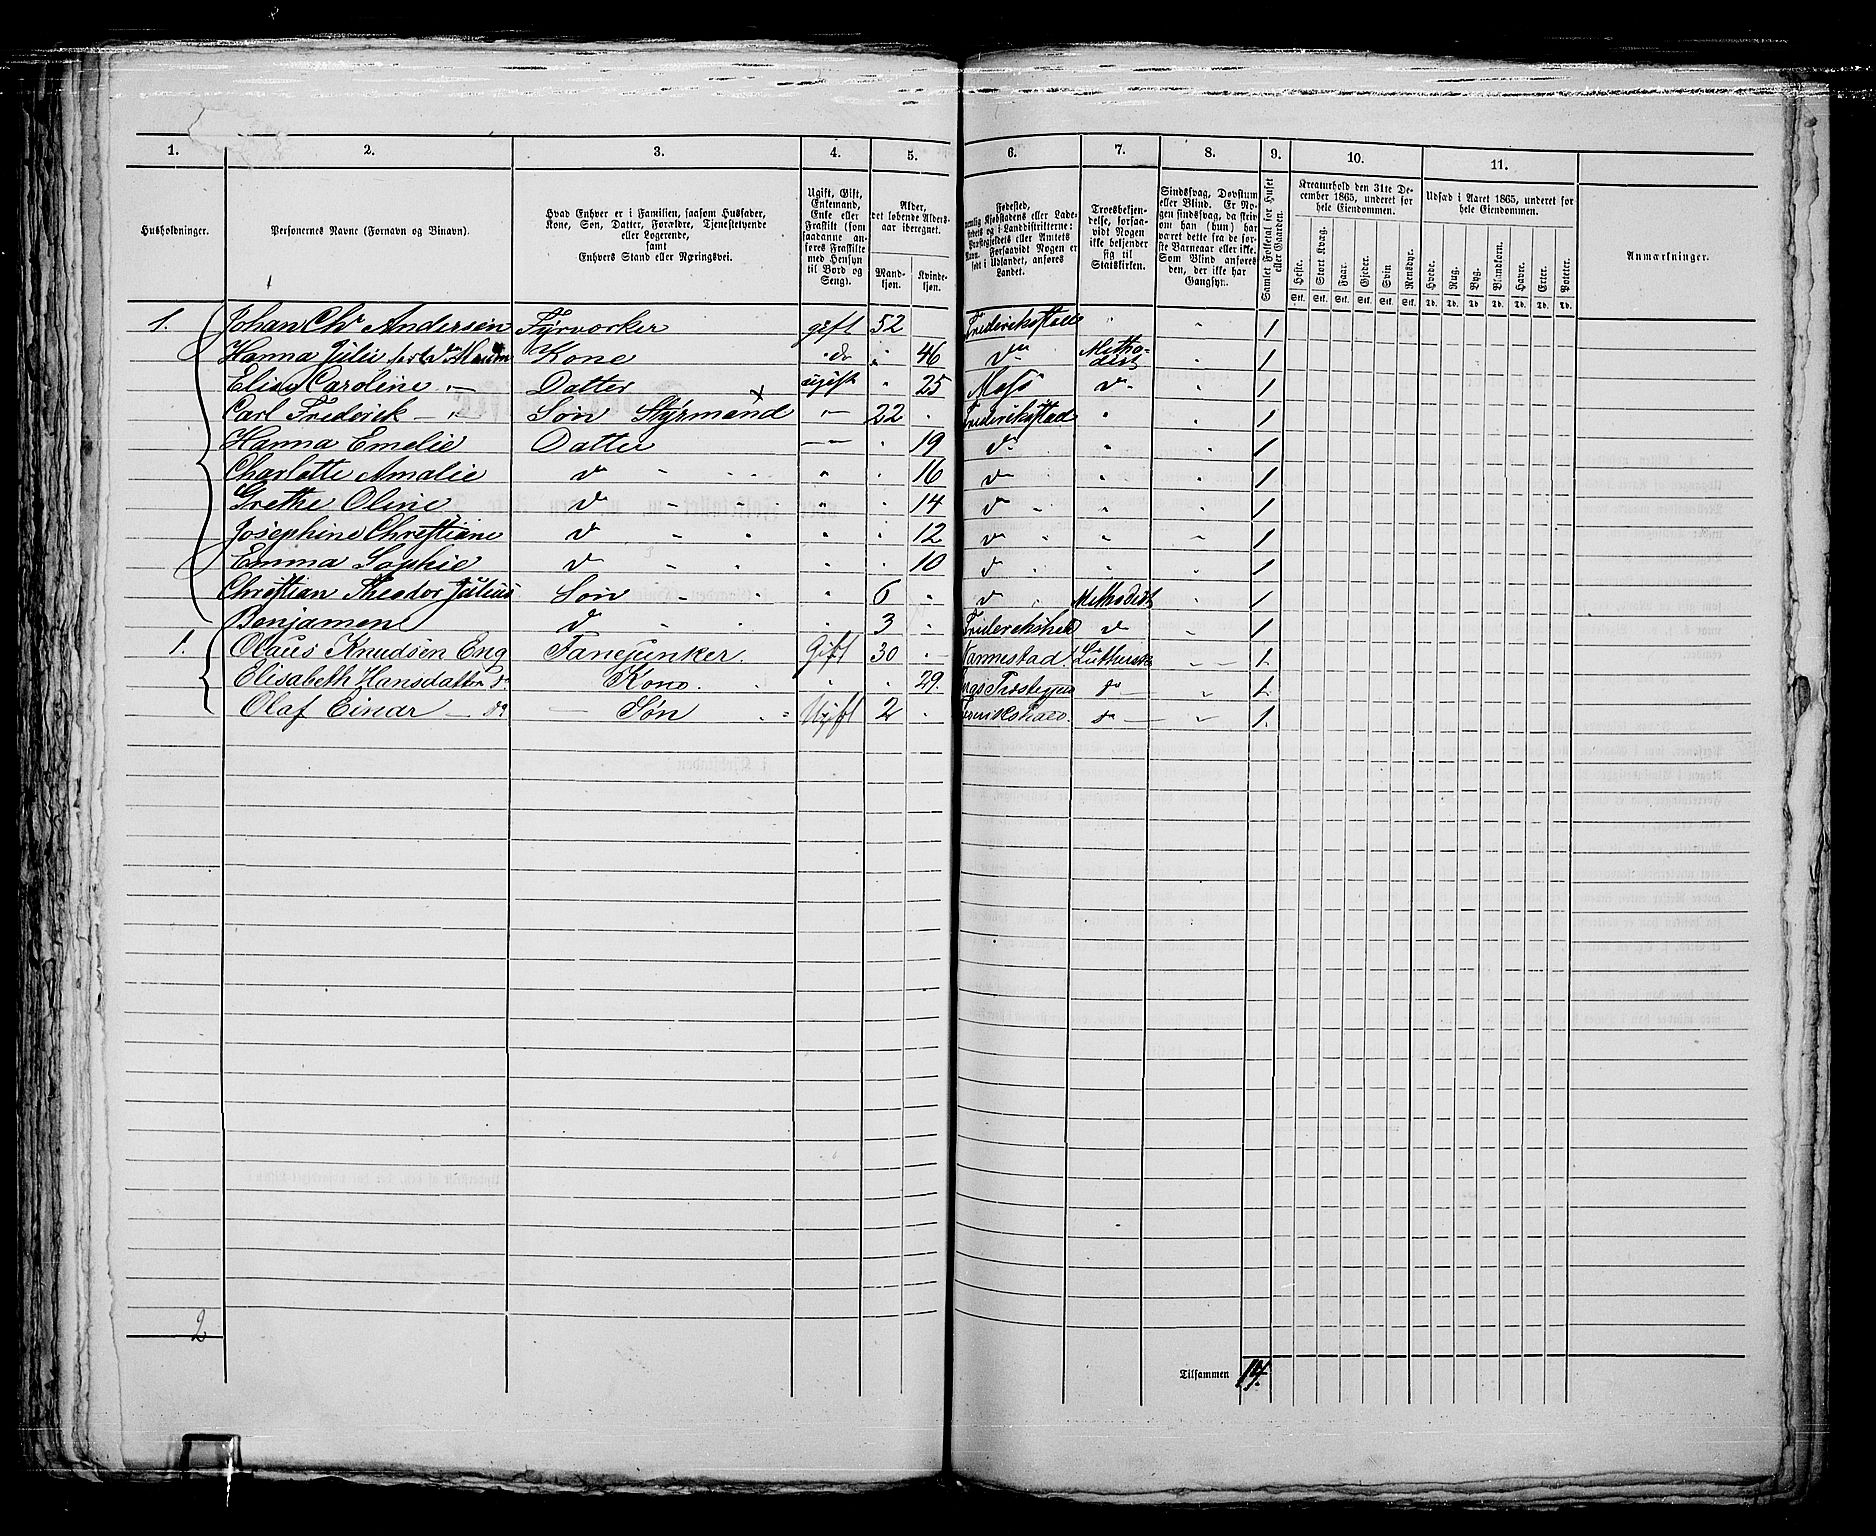 1. 2. 3. 4. 5. 6. 7. 8. 9. 10. 11.
Husholdninger.
Personernes Navne (Fornavn og Binavn).
Hvad Enhver er i Familien, saasom Husfader, Kone, Søn, Datter, Forældre, Tjenestetyende eller Logerende, samt Enhvers Stand eller Næringsvei.
Ugift, Gift, Enkemand, Enke eller Fraskilt (som saadanne anføres Fraskilte med Hensyn til Bord og Seng).
Alder, det løbende Alders-aar iberegnet.
Mandkjøn. Kvindekjøn.
Fødested, nemlig Kjøbstadens eller Ladestedets og i Landdistrikterne: Præstegjeldets eller Amtets Navn. Forsaavidt Nogen er født i Udlandet, anføres Landet.
Troesbekjendelse, forsaavidt Nogen ikke bekjender sig til Statskirken.
Sindssvag, Døvstum eller Blind. Er Nogen sindssvag, da skrives om han (hun) har været dette fra de første Barneaar eller ikke. Som Blind anføres den, der ikke har Gangsyn.
Samlet Folketal for Huset eller Gaarden.
Kreaturhold den 31te December 1865, underet for hele Eiendommen.
Heste. Stort Kvæg. Faar. Gjeder. Svin Rensdyr.
Stk. Stk. Stk. Stk. Stk. Stk.
Udsæd i Aaret 1865, underet for hele Eiendommen.
Hvede. Rug. Byg. Blandkorn. Havre. Erter. Poteter.
Td. Td. Td Td. Td. Td. Td.
Anmærkninger.
1. Johan Chr Andersen Fyrvorker gift 52 " Frederikstad " " 1
Hanna Julie Kone do " 46 do Methodist " 1
Elise Caroline " — Datter ugift " 25 Moss do 1
Carl Frederick — " Søn Styrmand — 22 " Frederikstad " " 1
Hanna Emelie Datter — " 19 do " " 1
Charlotte Amalie do " " " 16 do " " 1
Grethe Oline do " " " 14 do " " 1
Josephine Christiane do " " " 12 do " " 1
Emma Sophie do " " " 10 do " " 1
Christian Theodor Julius Søn " " 6 " do Methodist 1
Benjamen do " " 3 " Frederikshald do " 1
1. Olaus Knudsen Eng Fanejunker. Gift 30 " Nannestad Luthersk 1.
Elisabeth Hansdatter do Kone. " " 29. do — " 1.
Olaf Einar — do — Søn Ugift 2 " Frederikshald. do — " 1.
2
Tilsammen 14.